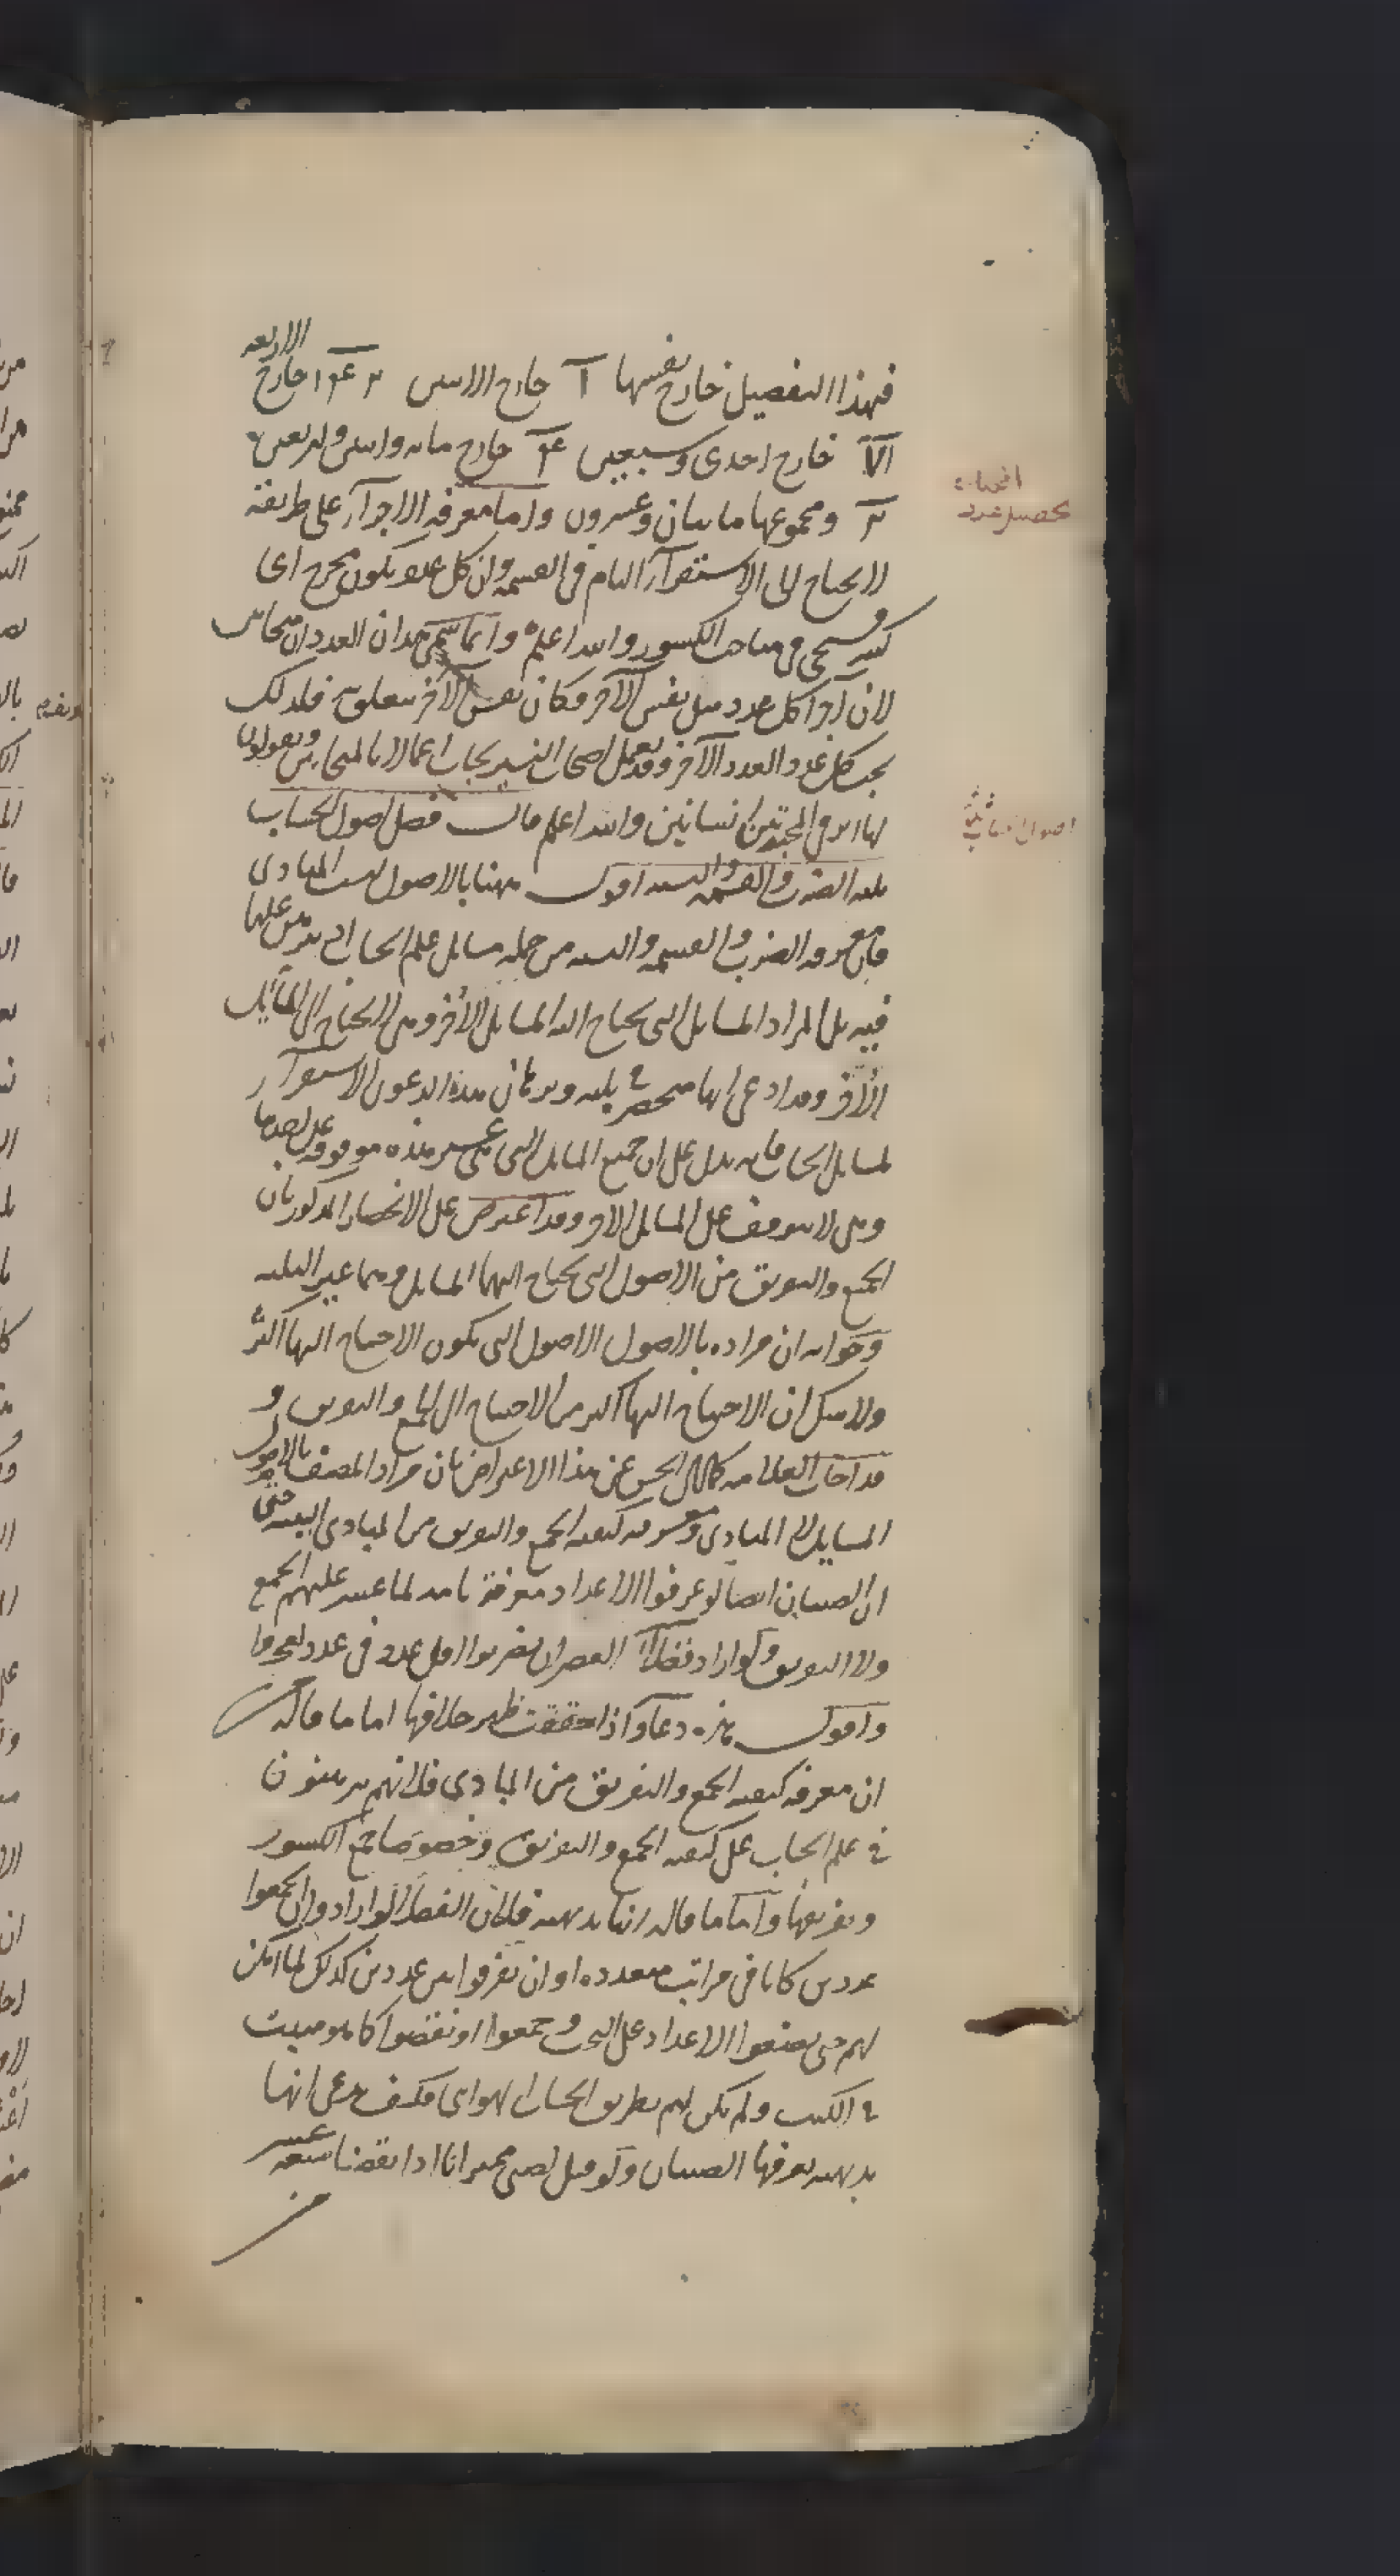 فهذا التفصيل خارج نفسها ١ خارج الاثنين ١٤٢ خارج الاربعه
٧١ خارج احدى وسبعين ٤ خارج مائه واثنين واربعين
٢ ومجموعها مايتان وعشرون واما معرفه الاجزآء على طريقة
لايحتاج الى الاستقرآء التام فى القسمه وان كل عدد يكون مخرج اى
كسر فسيجئ فى مباحث الكسور والله اعلم وانما سمى هذان العددان متحابين
لان اجزآ كل عدد مثل نفس الآخر فكان نفس الآخر متعلق به فلذلك
يحب كل عدد العدد الآخر وقد يعمل اصحاب النيرنجات اعمالا بالمتحابين ويقولون
لها اثر فى المحبة بين انسانين والله اعلم قال فصل اصول الحساب
ثلثه الضرب والقسمه والنسبه اقول ههنا بالاصول ليست المبادى
فان معرفه الضرب والقسمه والنسبه من جمله مسايل علم الحساب التى يبرهن عليها
فيه بل المراد المسايل التى يحتاج اليه المسايل الأخر وهى لايحتاج الى المسايل
الأخر وقد ادعى انها منحصرة فى ثلثه وبرهان هذه الدعوى الاستقرآء
لمسايل الحساب فانه يدل على ان جميع المسايل التى هى غير هذه موقوفه على احدها
وهى لا يتوقف على المسايل الاخر وقد اعترض على الانحصار المذكور بان
الجمع والتفريق من الاصول التى يحتاج اليهما المسايل وهما غير الثلثه
وجوابه ان مراده بالاصول الاصول التى يكون الاحتياج اليها اكثر
ولا شك ان الاحتياج اليها اكثر من الاحتياج الى الجمع والتفريق و
قد اجاب العلامه كمال الحسن عن هذا الاعتراض بان مراد المصنف بالاصول
المسايل لا المبادى ومعرفه كيفيه الجمع والتفريق من المبادى البينه حتى
ان الصبيان ايضا لو عرفوا الاعداد معرفة تامه لما عسر عليهم الجمع
ولا التفريق ولو اراد فضلآء العصر ان يضربوا اقل عدد فى عدد لعجزوا
واقول هذه دعاو اذا حققت ظهر خلافها اما ما قاله
ان معرفه كيفيه الجمع والتفريق من المبادى فلانهم يبرهنون
فى علم الحساب على كيفيه الجمع والتفريق وخصوصا جمع الكسور
وتفريقها واما ما قاله انها بديهيه فلان الفضلا لو ارادوا ان يجمعوا
عددين كانا فى مراتب متعدده او ان يفرقوا بين عددين كذلك لما امكن
لهم حتى يضعوا الاعداد على التخت وجمعوا او نقصوا كما هو مبيت
فى الكتب ولم يكن لهم بطريق الحساب الهوائى فكيف يدعى انها
بديهيه يعرفها الصبيان ولو قيل لصبى مميز انا اذا نقصنا سبعه عشر
من
تحصيل عدد
اصول الحساب ثلثة